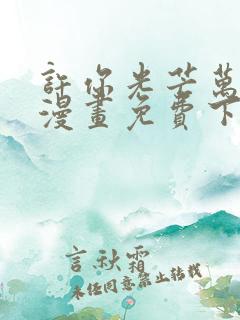 許你光芒萬
漫畫免費下
言秋霜
未经同意禁止转载